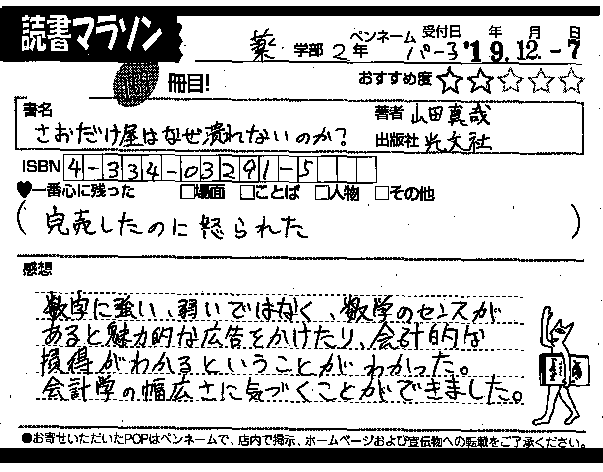 読書マラソン
薬 学部 2年 ペンネーム パーコ 受付日 '19年12月-7日
冊目!
おすすめ度 ☆☆☆☆☆
書名 さおだけ屋はなぜ潰れないのか?
著者 山田真哉
出版社 光文社
ISBN 4-334-03291-5
♥一番心に残った □場面 □ことば □人物 □その他
(完売したのに怒られた)
感想
数字に強い、弱いではなく、数学のセンスが
あると魅力的な広告をかけたり、会計的な
損得がわかるということがわかった。
会計学の幅広さに気づくことができました。
●お寄せいただいたPOPはペンネームで、店内で掲示、ホームページおよび宣伝物への転載をご了承ください。